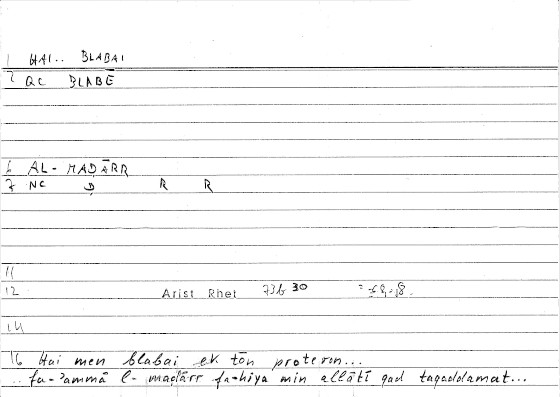 1 HAI.. BLABAI
2 QC BLABĒ
6 AL- MAḌĀRR
7 NC Ḍ R R
11
12 Arist Rhet 73b 30
14
16 Hai men blabai ek tōn proterōn...
.. fa-'ammā l- maḍārr fa-hiya min allātī qad taqaddamat...